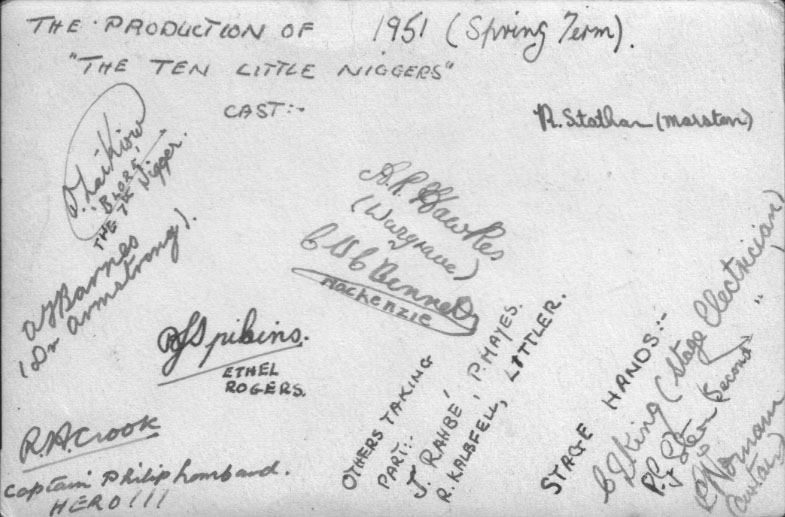 THE PRODUCTION OF 1951 (Spring Term).
"THE TEN LITTLE NIGGERS"
CAST:-
R. Statham (Marston)
"BLORE"
THE 7th Nigger.
A.R. Hawkes
(Wargrave)
C B C Bennett
Mackenzie
A J Barnes
(Dr Armstrong).
R J Spibins.
ETHEL
ROGERS.
R.A. Crook
Captain Philip Lombard.
HERO!!!
OTHERS TAKING
PART:-
J. RAHBE', P. HAYES.
R. KALBFELL, LITTLER.
STAGE HANDS:-
King (Stage Electrician)
(Second " "
Normann
(Curtain)